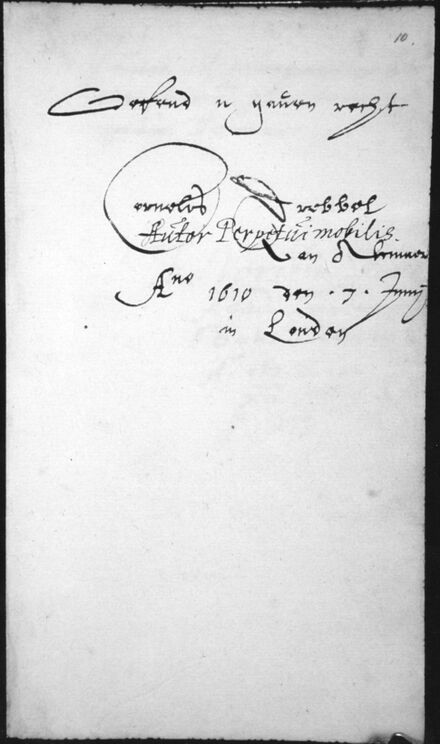 10.
Oeffend u gauen recht
Cornelis Drebbel
Autor Perpetui mobilis.
Van Alcmaer
Ano 1610 den . 7 . Junij
in London